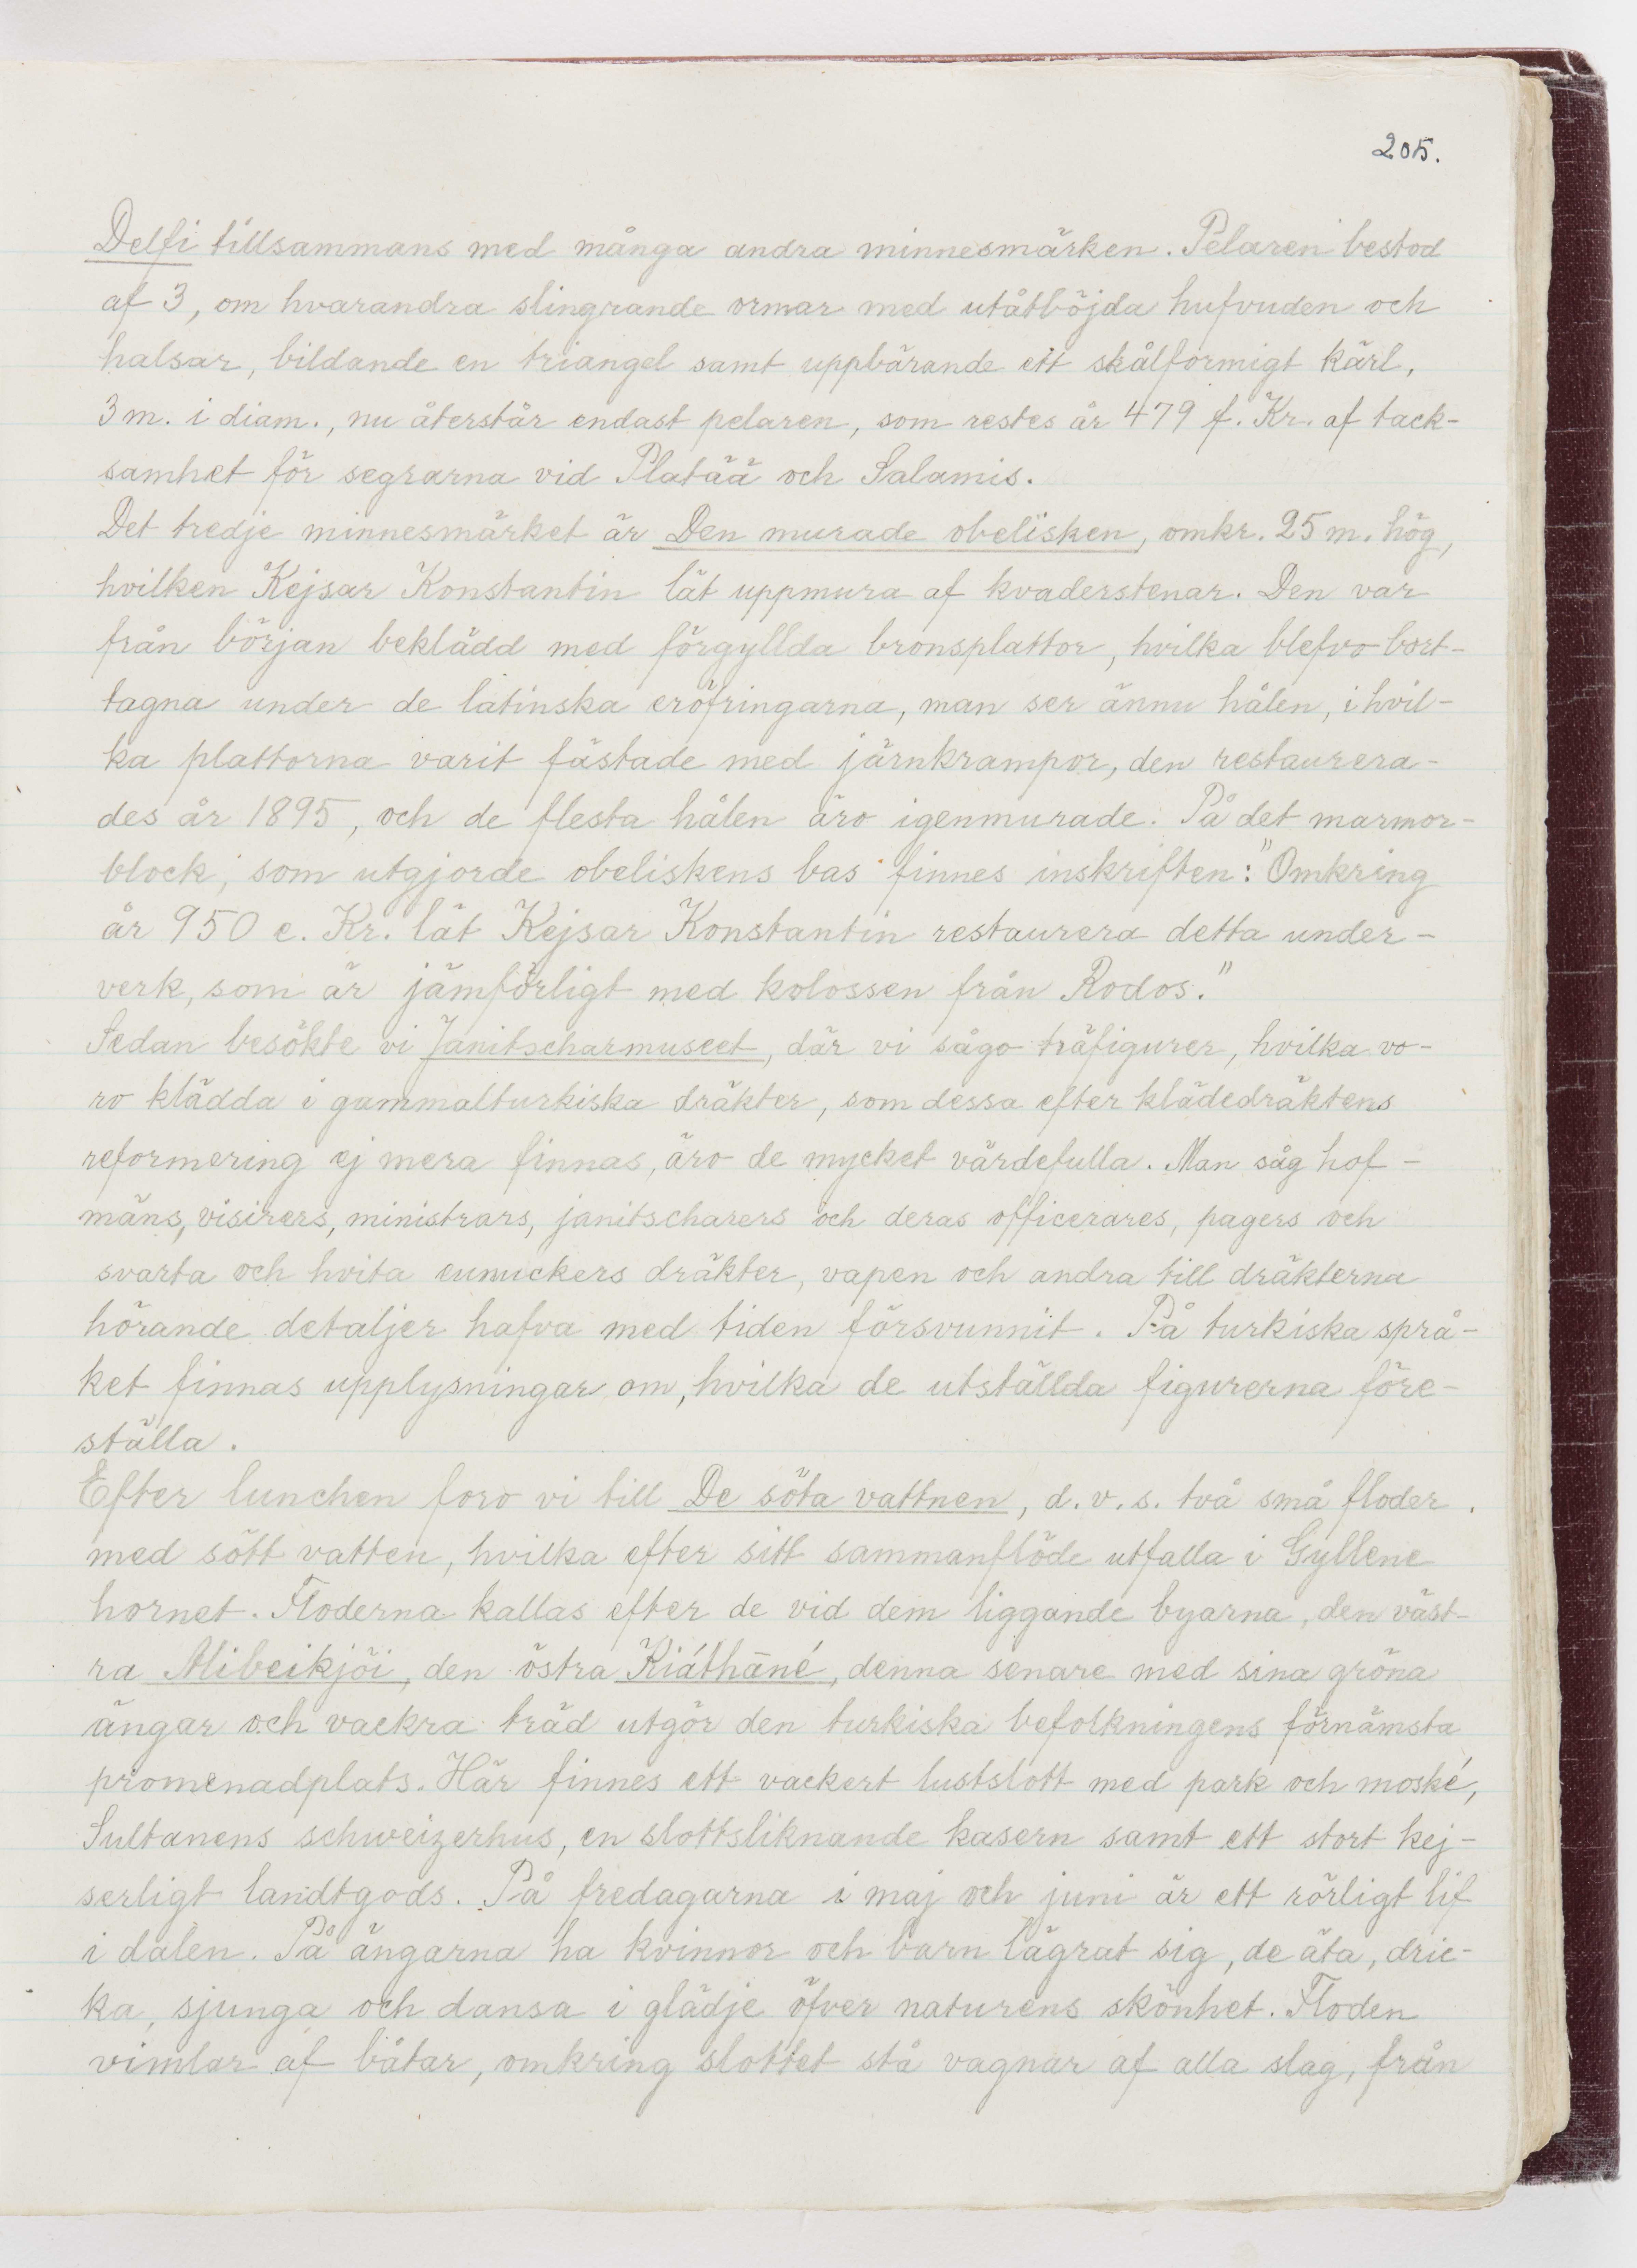 205.
Delfi tillsammans med många andra minnesmärken. Pelaren bestod
af 3, om hvarandra slingrande ormar med utåtböjda hufvuden och
halsar, bildande en triangel samt uppbärande ett skålformigt kärl,
3 m. i diam., nu återstår endast pelaren, som restes år 479 f. Kr. af tack-
samhet för segrarna vid Platää och Salamis.
Det tredje minnesmärket är Den murade obelisken, omkr. 25 m. hög,
hvilken Kejsar Konstantin lät uppmura af kvaderstenar. Den var
från början beklädd med förgyllda bronsplattor, hvilka blefvo bort-
tagna under de latinska eröfringarna, man ser ännu hålen, i hvil-
ka plattorna varit fästade med järnkrampor, den restaurera-
des år 1895, och de flesta hålen äro igenmurade. På det marmor-
block, som utgjorde obeliskens bas finnes inskriften: "Omkring
år 950 e. Kr. lät Kejsar Konstantin restaurera detta under-
verk, som är jämförligt med kolossen från Rodos."
Sedan besökte vi Janitscharmuseet, där vi sågo träfigurer, hvilka vo-
ro klädda i gammalturkiska dräkter, som dessa efter klädedräktens
reformering ej mera finnas, äro de mycket värdefulla. Man såg hof-
mäns, visirers, ministrars, janitscharers och deras officerares, pagers och
svarta och hvita eunuckers dräkter, vapen och andra till dräkterna
hörande detaljer hafva med tiden försvunnit. På turkiska språ-
ket finnas upplysningar om, hvilka de utställda figurerna före-
ställa.
Efter lunchen foro vi till De söta vattnen, d. v. s. två små floder
med sött vatten, hvilka efter sitt sammanflöde utfalla i Gyllene
hornet. Floderna kallas efter de vid dem liggande byarna, den väst-
ra Alibeikjöi, den östra Kiáthāné, denna senare med sina gröna
ängar och vackra träd utgör den turkiska befolkningens förnämsta
promenadplats. Här finnes ett vackert lustslott med park och moské,
Sultanens schweizerhus, en slottsliknande kasern samt ett stort kej-
serligt landtgods. På fredagarna i maj och juni är ett rörligt lif
i dalen. På ängarna ha kvinnor och barn lägrat sig, de äta, dric-
ka, sjunga och dansa i glädje öfver naturens skönhet. Floden
vimlar af båtar, omkring slottet stå vagnar af alla slag, från